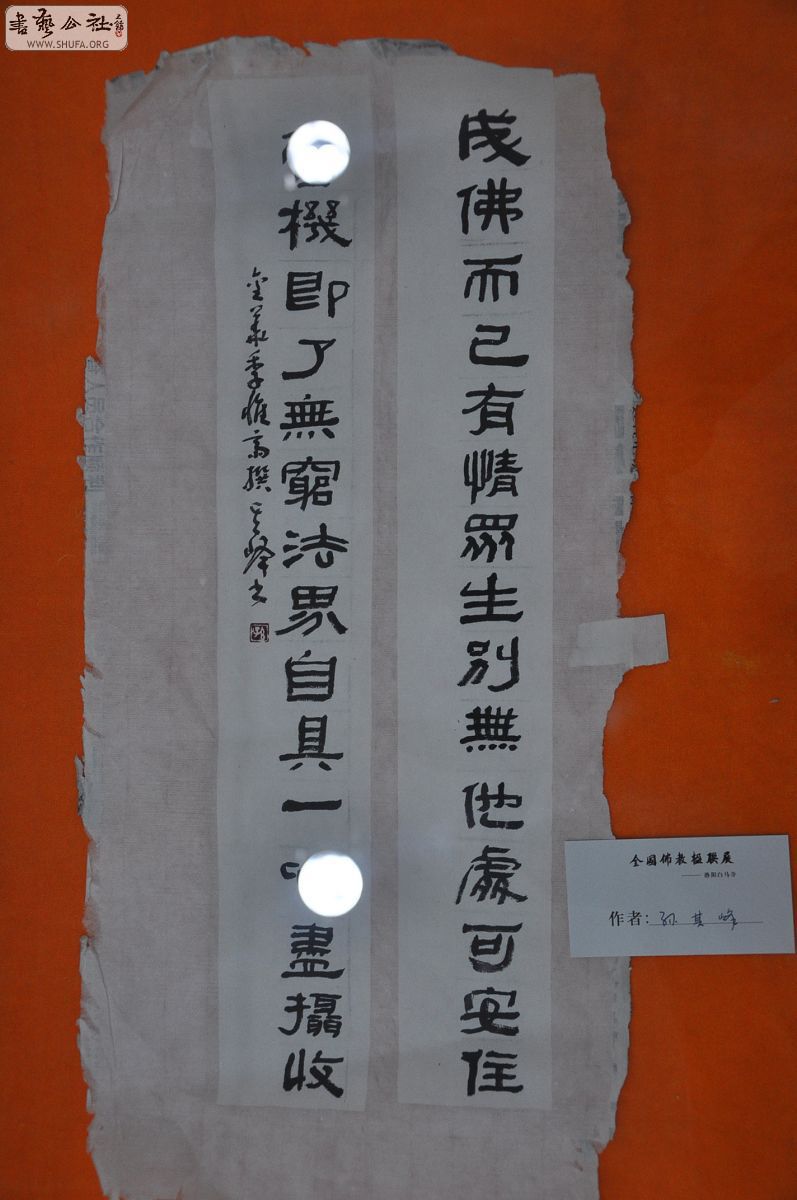 書藝公社
WWW.SHUFA.ORG
成佛而已有情眾生別無他處可安住
機即了無窮法界自具一盡攝收
金羲季惟高撰其峰书
全國佛教楹聯展
——洛阳白马寺
作者:孙其峰